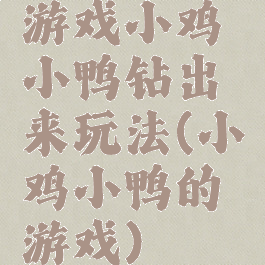 游戏小鸡
小鸭钻出
来玩法(小
鸡小鸭的
游戏)